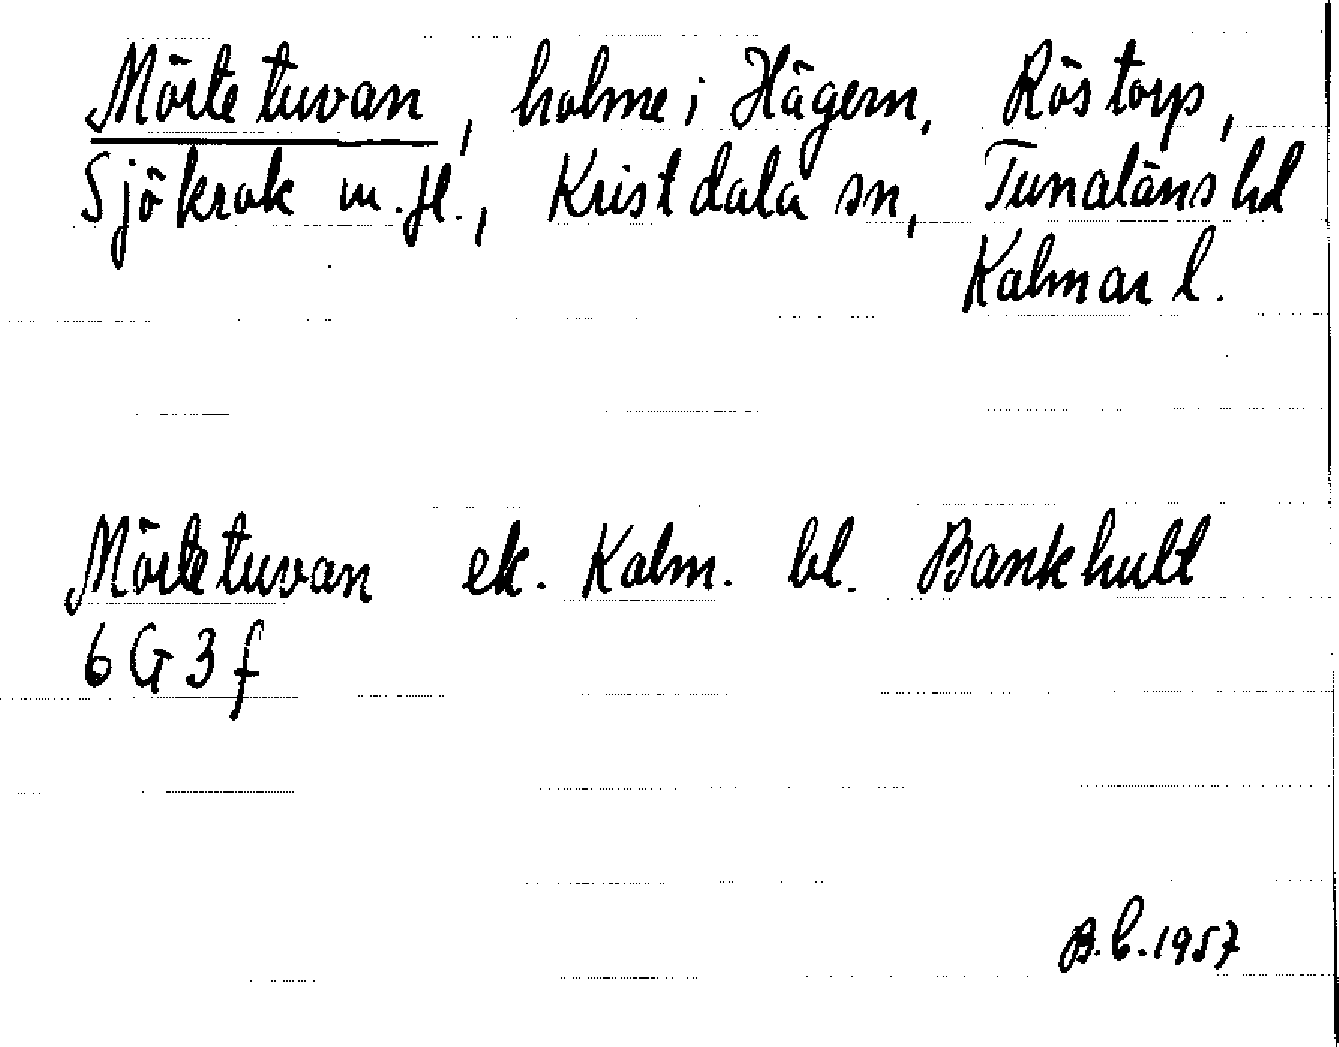 Mörtetuvan, holme i Hägern, Röstorp,
Sjökrok m.fl., Kristdala sn, Tunaläns hd
Kalmar l.
Mörtetuvan ek. Kalm. bl. Bankhult
6 G 3 f
B.L. 1957